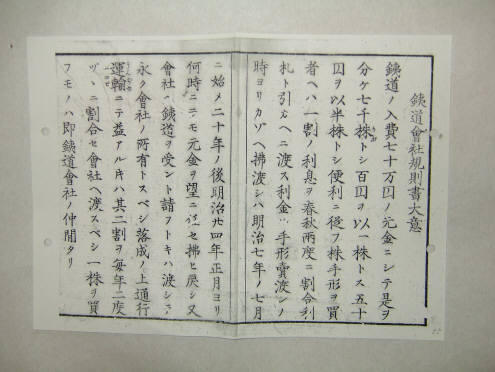 鉄道會社規則書大意
鉄道ノ入費七十万円ノ元金ニシテ是ヲ
分ケ七千株トシ百円ヲ以一株トス五十
円ヲ以半株トシ便利ニ從フ株手形ヲ買
者ヘハ一割ノ利息ヲ春秋両度ニ割合利
札ト引かヘニ渡ス利金ハ手形賣渡シノ
時ヨリカゾヘ拂渡シハ明治七年ノ七月
ニ始メ二十年ノ後明治廿四年正月ヨリ
何時ニテモ元金ヲ望ニ任セ拂ヒ戻シ又
會社ヘ鉄道ヲ受ント請フトキハ渡シテ
永ク會社ノ所有トスベシ落成ノ上通行
運輸ニテ益アル片ハ其二割ヲ毎年二度
ヅヽニ割合セ會社ヘ渡スベシ一株ヲ買
フモノハ即鉄道會社ノ仲間タリ